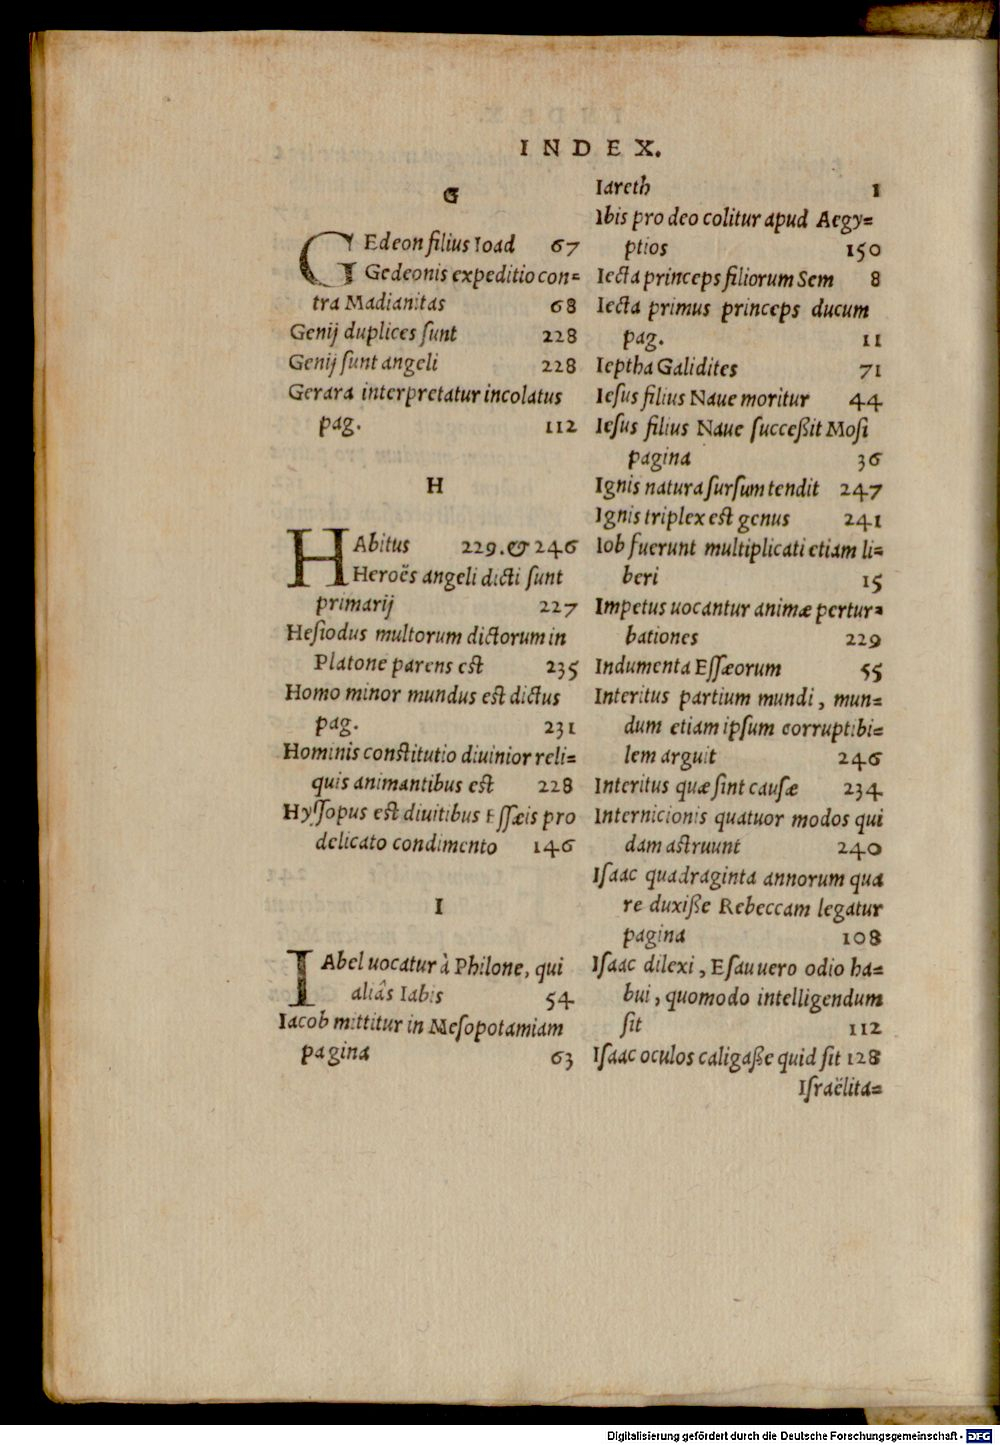 INDEX.
G
GEdeon filius Ioad 67
Gedeonis expeditio con=
tra Madianitas 68
Genij duplices ſunt 228
Genij ſunt angeli 228
Gerara interpretatur incolatus
pag. 112
H
HAbitus 229.& 246
Heroës angeli dicti ſunt
primarij 227
Heſiodus multorum dictorum in
Platone parens est 235
Homo minor mundus est dictus
pag. 231
Hominis constitutio diuinior reli=
quis animantibus est 228
Hyſſopus est diuitibus Eſſæis pro
delicato condimento 146
I
IAbel uocatur à Philone, qui
aliâs Iabis 54
Iacob mittitur in Meſopotamiam
pagina 63
Iareth 1
Ibis pro deo colitur apud Aegy=
ptios 150
Iecta princeps filiorum Sem 8
Iecta primus princeps ducum
pag. 11
Ieptha Galidites 71
Ieſus filius Naue moritur 44
Ieſus filius Naue ſucceßit Moſi
pagina 36
Ignis natura ſurſum tendit 247
Ignis triplex est genus 241
Iob fuerunt multiplicati etiam li=
beri 15
Impetus uocantur animæ pertur=
bationes 229
Indumenta Eſſæorum 55
Interitus partium mundi, mun=
dum etiam ipſum corruptibi=
lem arguit 246
Interitus quæ ſint cauſæ 234
Internicionis quatuor modos qui
dam astruunt 240
Iſaac quadraginta annorum qua
re duxiße Rebeccam legatur
pagina 108
Iſaac dilexi, Eſau uero odio ha=
bui, quomodo intelligendum
ſit 112
Iſaac oculos caligaße quid ſit 128
Iſraëlita=
Digitalisierung gefördert durch die Deutsche Forschungsgemeinschaft - DFG